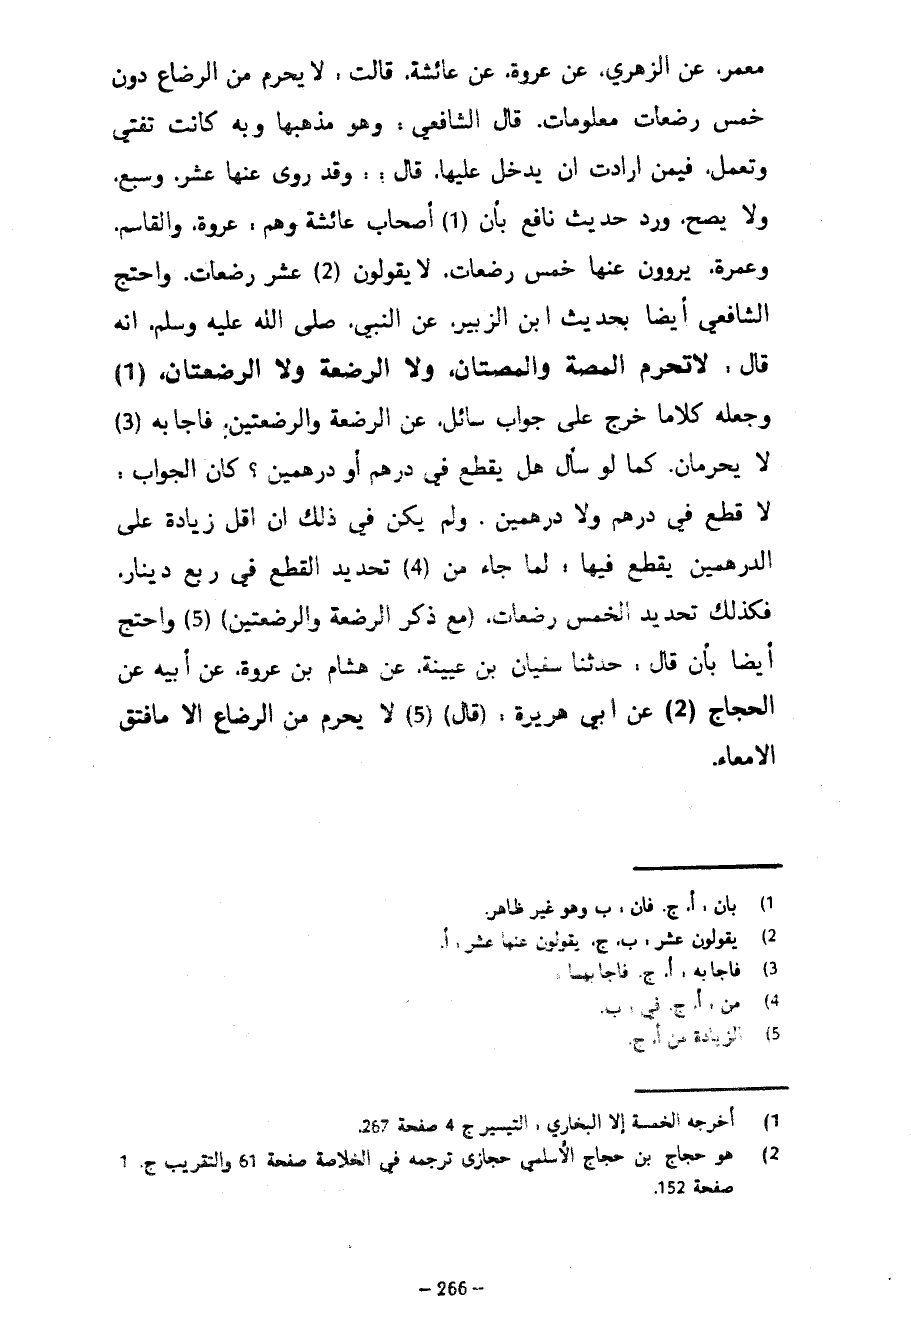 معمر، عن الزهري، عن عروة، عن عائشة، قالت : لا يحرم من الرضاع دون
خمس رضعات معلومات. قال الشافعي : وهو مذهبها وبه كانت تفتي
وتعمل، فيمن ارادت ان يدخل عليها، قال : : وقد روى عنها عشر، وسبع،
ولا يصح، ورد حديث نافع بأن (1) أصحاب عائشة وهم : عروة، والقاسم،
وعمرة، يروون عنها خمس رضعات، لا يقولون (2) عشر رضعات، واحتج
الشافعي أيضا بحديث ابن الزبير، عن النبي، صلى الله عليه وسلم، انه
قال : لاتحرم المصة والمصتان، ولا الرضعة ولا الرضعتان، (1)
وجعله كلاما خرج على جواب سائل، عن الرضعة والرضعتين; فاجابه (3)
لا يحرمان، كما لو سأل هل يقطع في درهم أو درهمين ؟ كان الجواب :
لا قطع في درهم ولا درهمين . ولم يكن في ذلك ان اقل زيادة على
الدرهمين يقطع فيها : لما جاء من (4) تحديد القطع في ربع دينار،
فكذلك تحديد الخمس رضعات، (مع ذكر الرضعة والرضعتين) (5) واحتج
أيضا بأن قال : حدثنا سفيان بن عيينة، عن هشام بن عروة، عن أبيه عن
الحجاج (2) عن ابي هريرة : (قال) (5) لا يحرم من الرضاع الا مافتق
الامعاء.
1) بان : أ، ج. فان : ب وهو غير ظاهر.
2) يقولون عشر : ب، ج، يقولون عنها عشر : أ.
3) فاجابه : أ، ج. فاجابهما :
4) من : أ، ج. في : ب.
5) الزيادة من أ، ج.
1) أخرجه الخمسة إلا البخاري : التيسير ج 4 صفحة 267.
2) هو حجاج بن حجاج الأسلمي حجازى ترجمه في الخلاصة صفحة 61 والتقريب ج. 1
صفحة 152.
– 266 –